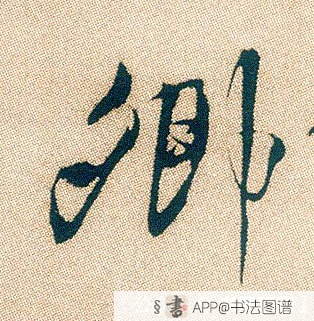 卿
§ 書 APP@书法图谱